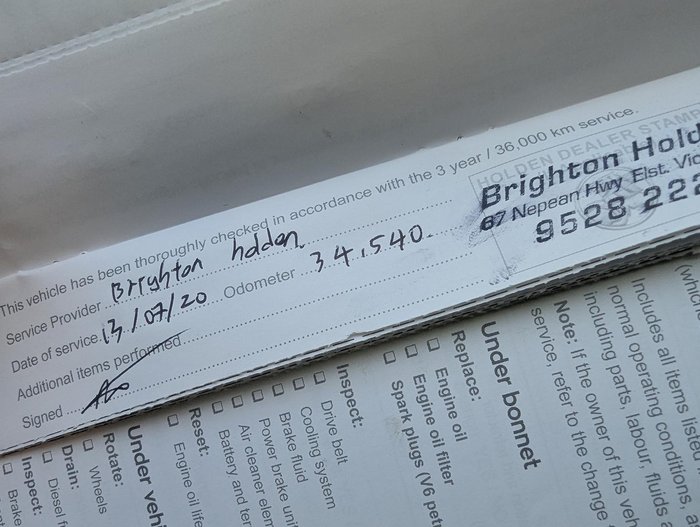 This vehicle has been thoroughly checked in accordance with the 3 year / 36,000 km service.
Service Provider Brighton holden.
Date of service 13/07/20 Odometer 34.540.
Additional items performed
Signed
HOLDEN DEALER STAMP
Brighton Hold
67 Nepean Hwy Elst. Vic
9528 222
Includes all items listed
normal operating conditions,
including parts, labour, fluids a
Note: If the owner of this veh
service, refer to the change
Under bonnet
Replace:
Engine oil
Engine oil filter
Spark plugs (V6 pet
Inspect:
Drive belt
Cooling system
Brake fluid
Power brake uni
Air cleaner elem
Battery and ter
Reset:
Engine oil life
Under vehi
Rotate:
Wheels
Drain:
Diesel f
Inspect:
Brake